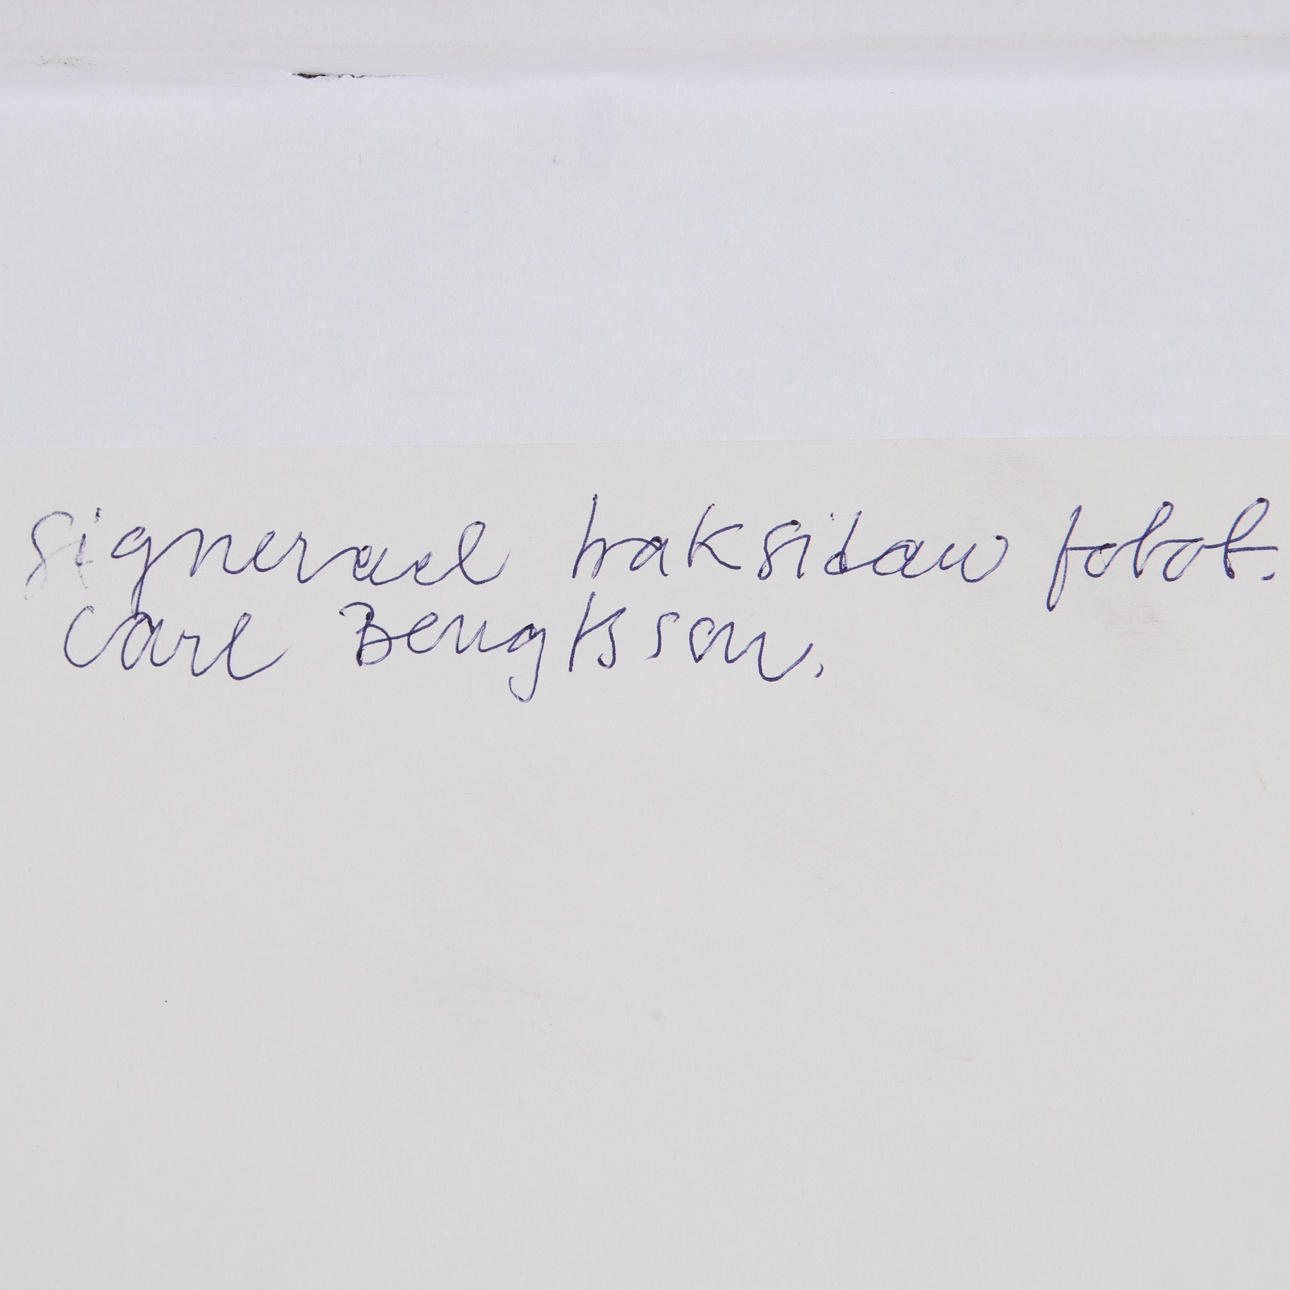 Signerad baksidan fotot.
Carl Bengtsson.